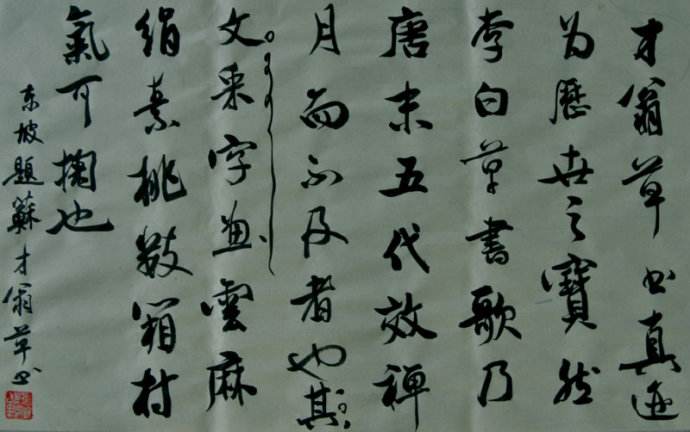 才翁草书真迹
为歷世之寶然
李白草書歌乃
唐末五代效禅
月而不及者也其
文采字畫雲麻
绢素桃数箱村
氣可掬也
东坡题蘇才翁草书